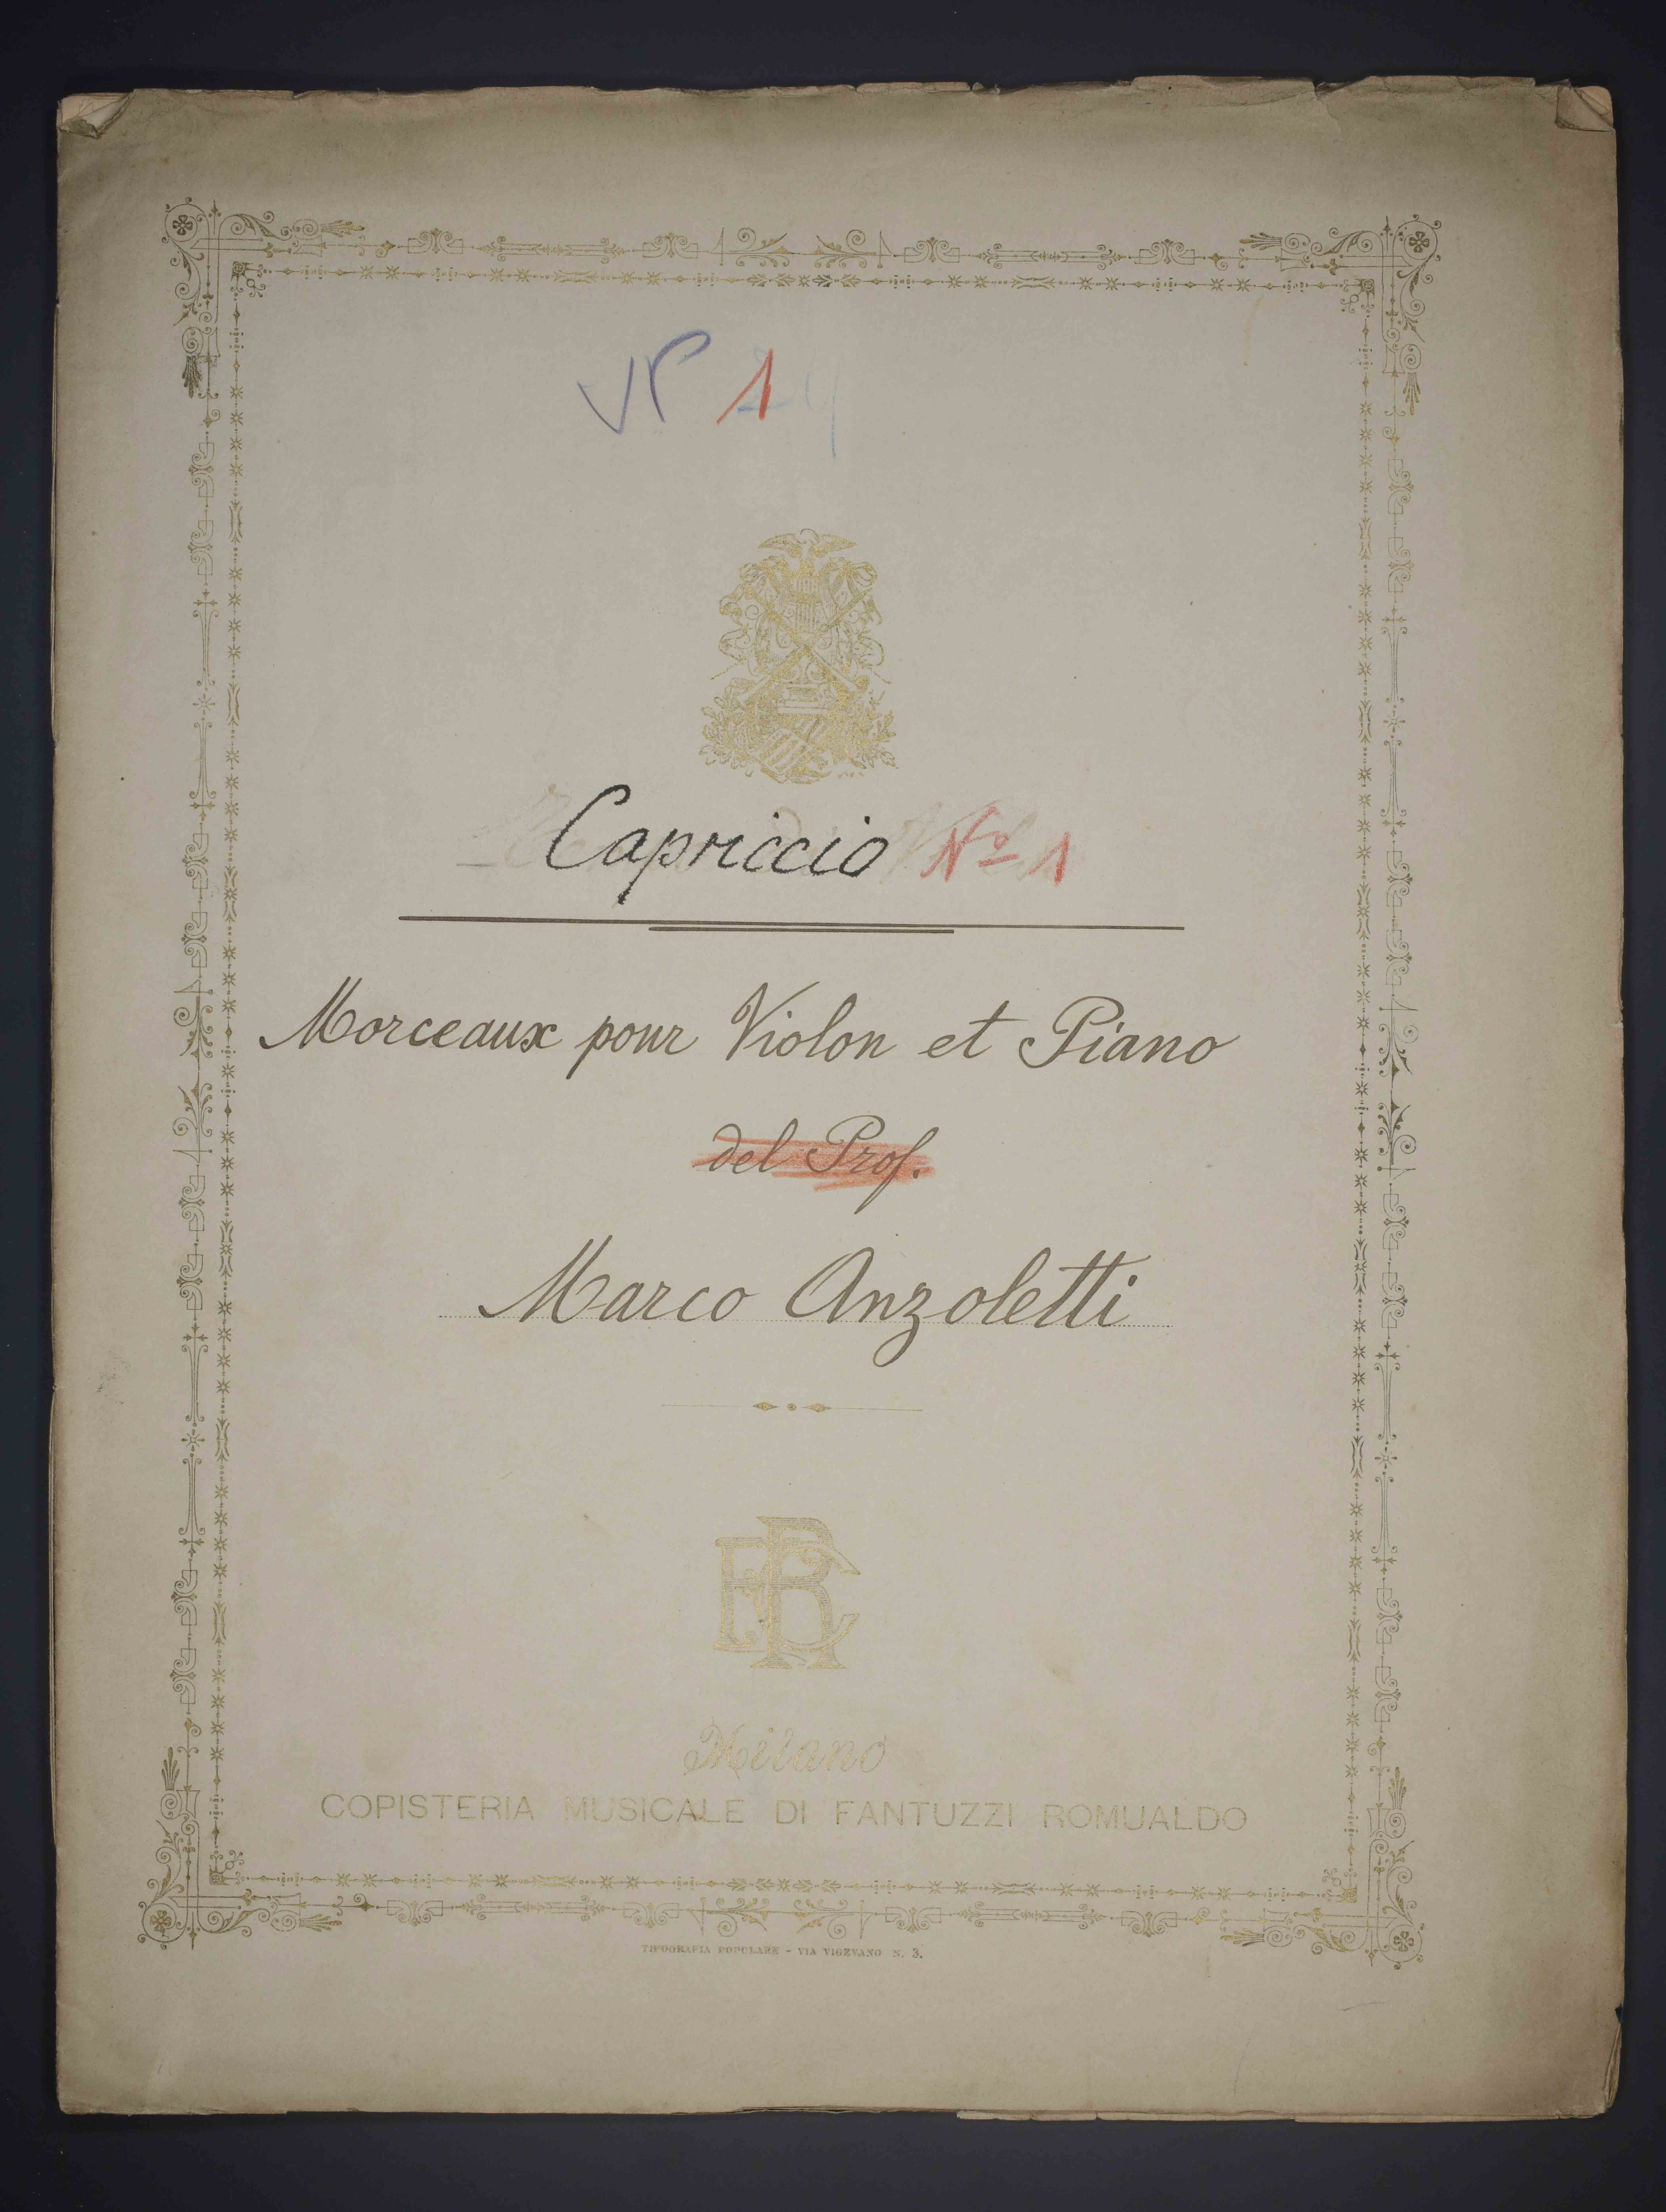 N° 1
Capriccio Nº 1
Morceaux pour Violon et Piano
del Prof.
Marco Anzoletti
Milano
COPISTERIA MUSICALE DI FANTUZZI ROMUALDO
TIPOGRAFIA POPOLARE - VIA VIGEVANO N. 3.